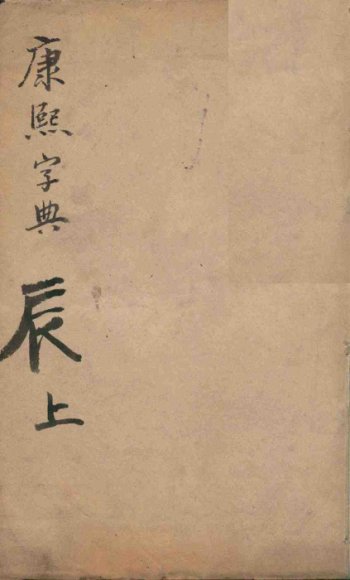 康熙字典
辰上